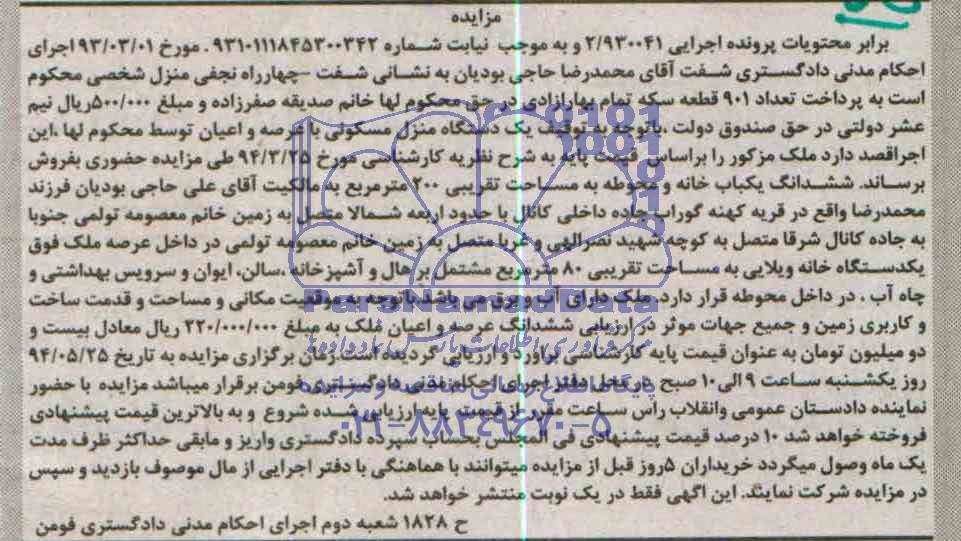 مزایده
برابر محتویات پرونده اجرایی ۲/۹۳۰۰۴۱ و به موجب نیابت شماره ۹۳۱۰۱۱۱۸۴۵۳۰۰۳۴۲ . مورخ ۹۳/۰۳/۰۱ اجرای
احکام مدنی دادگستری شفت آقای محمدرضا حاجی بودیان به نشانی شفت -چهارراه نجفی منزل شخصی محکوم
است به پرداخت تعداد ۹۰۱ قطعه سکه تمام بهارازادی در حق محکوم لها خانم صدیقه صفرزاده و مبلغ ۵۰۰/۰۰۰ریال نیم
عشر دولتی در حق صندوق دولت ،باتوجه به توقیف یک دستگاه منزل مسکونی با عرصه و اعیان توسط محکوم لها ،این
اجراقصد دارد ملک مزکور را براساس قیمت پایه به شرح نظریه کارشناسی مورخ ۹۴/۳/۲۵ طی مزایده حضوری بفروش
برساند. ششدانگ یکباب خانه و محوطه به مساحت تقریبی ۲۰۰ مترمربع به مالکیت آقای علی حاجی بودیان فرزند
محمدرضا واقع در قریه کهنه گوراب جاده داخلی کانال با حدود اربعه شمالا متصل به زمین خانم معصومه تولمی جنوبا
به جاده کانال شرقا متصل به کوچه شهید نصرالهی و غربا متصل به زمین خانم معصومه تولمی در داخل عرصه ملک فوق
یکدستگاه خانه ویلایی به مساحت تقریبی ۸۰ مترمربع مشتمل بر هال و آشپزخانه ،سالن، ایوان و سرویس بهداشتی و
چاه آب . در داخل محوطه قرار دارد. ملک دارای آب و برق می باشد باتوجه به موقعیت مکانی و مساحت و قدمت ساخت
و کاربری زمین و جمیع جهات موثر در ارزیابی ششدانگ عرصه و اعیان ملک به مبلغ ۲۲۰/۰۰۰/۰۰۰ ریال معادل بیست و
دو میلیون تومان به عنوان قیمت پایه کارشناسی براورد و ارزیابی گردیده است.زمان برگزاری مزایده به تاریخ ۹۴/۰۵/۲۵
روز یکشنبه ساعت ۹ الی۱۰ صبح در محل دفتر اجرای احکام مدنی دادگستری فومن برقرار میباشد مزایده با حضور
نماینده دادستان عمومی وانقلاب راس ساعت مقرر از قیمت پایه ارزیابی شده شروع و به بالاترین قیمت پیشنهادی
فروخته خواهد شد ۱۰ درصد قیمت پیشنهادی فی المجلس بحساب سپرده دادگستری واریز و مابقی حداکثر ظرف مدت
یک ماه وصول میگردد خریداران ۵روز قبل از مزایده میتوانند با هماهنگی با دفتر اجرایی از مال موصوف بازدید و سپس
در مزایده شرکت نمایند. این اگهی فقط در یک نوبت منتشر خواهد شد.
ح ۱۸۲۸ شعبه دوم اجرای احکام مدنی دادگستری فومن
ParsNamadData
۰۲۱-۸۸۳۴۹۶۷۰-۵